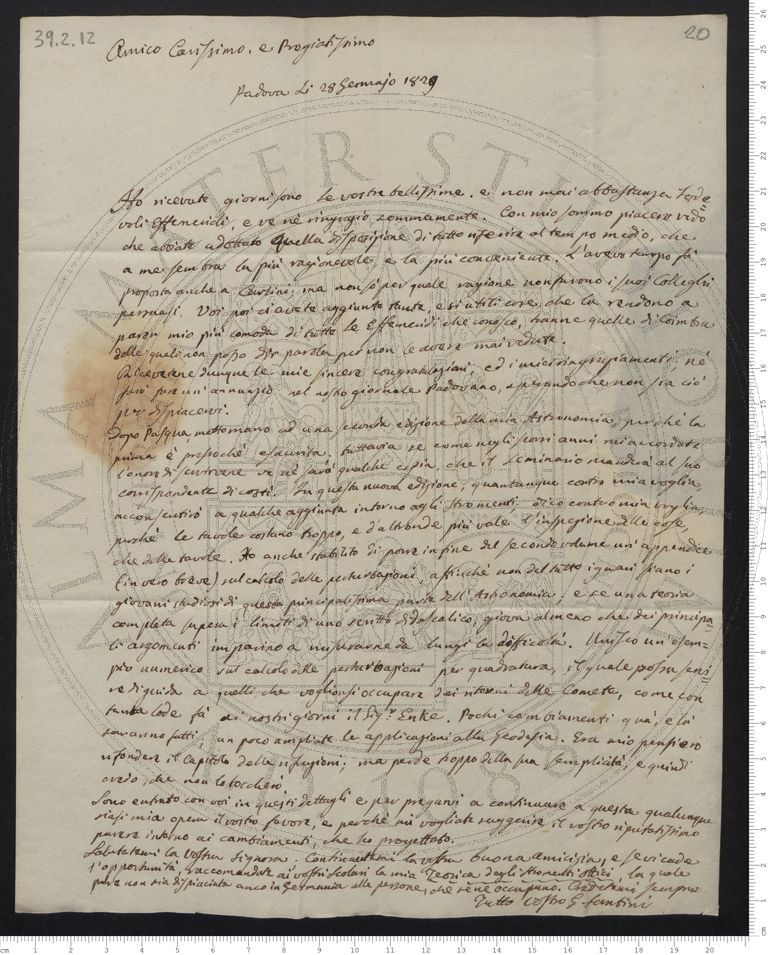 39.2.12
20
Amico Carissimo, e Pregiatissimo
Padova li 28 Gennajo 1829
Ho ricevute giorni sono le vostre bellissime, e non mai abbastanza lode=
voli Effemeridi, e ve ne ringrazio sommamente. Con mio sommo piacere vedo
che abbiate adottato quella disposizione di tutto riferire al tempo medio, che
a me sembra la più ragionevole e la più conveniente. L'avevo tempo fà
proposta anche a Carlini; ma non sò per quale ragione non furono i suoi Colleghi
persuasi. Voi poi ci avete aggiunte tante, e sì utili cose, che la rendono a
parer mio più comoda di tutte le Effemeridi che conosco, tranne quelle di Coimbra
delle quali non posso dir parola per non le avere mai vedute.
Ricevetene dunque le mie sincere congratulazioni, ed i miei ringraziamenti; nè
farò un annunzio nel nostro giornale Padovano, sperando che non sia ciò
per dispiacervi.
Dopo Pasqua metteremo ad una seconda edizione della mia Astronomia, perchè la
prima è pressochè esaurita. Tuttavia se come negli scorsi anni mi accordate
l'onore di servirvene ve ne sarà qualche copia, che il Seminario manderà al suo
corrispondente di costì. In questa nuova edizione, quantunque contro mia voglia,
acconsentirò a qualche aggiunta intorno agli stromenti; dico contro mia voglia,
perchè le tavole costano troppo, e d'altronde più vale l'inspezione delle cose,
che delle tavole. Ho anche stabilito di porre in fine del secondo volume un'appendice
(in vero breve) sul calcolo delle perturbazioni, affinchè non del tutto ignari siano i
giovani studiosi di questa principalissima parte dell'Astronomia; e se una teoria
completa supera i limiti di uno scritto didascalico, giova almeno che dei principa=
li argomenti imparino a misurarne da lungi la difficoltà. Unisco un esem=
pio numerico sul calcolo delle perturbazioni per quadratura, il quale possa servi=
re di guida a quelli che vogliansi occupare dei ritorni delle Comete, come con
tanta lode fà ai nostri giorni il Sig.r Enke. Pochi cambiamenti quà, e là
saranno fatti, un poco ampliate le applicazioni alla Geodesia. Era mio pensiero
rifondere il Capitolo della rifrazioni; ma perde troppo della sua semplicità, e quindi
credo, che non lo toccherò.
Sono entrato con voi in questi dettagli e per pregarvi a continuare a questa qualunque
siasi mia opera il vostro favore, e perchè mi vogliate suggerire il vostro riputatissimo
parere intorno ai cambiamenti, che ho progettato.
Salutatemi la Vostra Signora. Continuatemi la vostra buona amicizia, e se vi cade
l'opportunità, raccomandate ai vostri scolari la mia Teorica degli stromenti ottici, la quale
pare non sia dispiaciuta anco in Germania alle persone, che se ne occupano. Credetemi sempre
Tutto vostro G. Santini